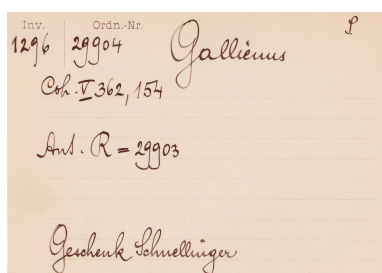 Inv. Ordn.-Nr.
1296 29904 Gallienus
Coh. V 362, 154
Ant. R = 29903
Geschenk Schnellinger